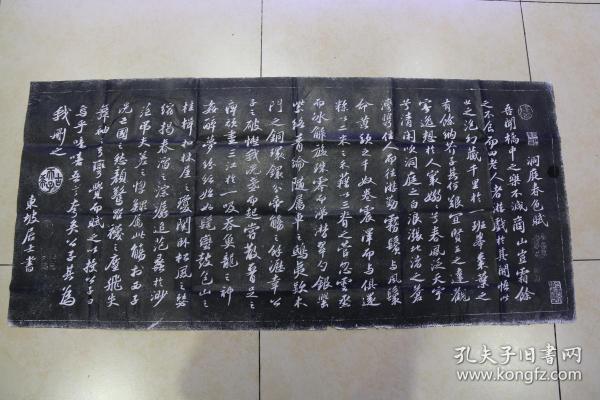 洞庭春色賦
吾聞橘中之樂不減商山豈霜餘
之不食而四老人者遊戲於其間悟此
世之泡幻藏千里於一班舉棗葉之
有餘納芥子其何艱宜賢王之達觀
寄逸想於人寰嫋嫋兮春風泛天宇
兮清閑吹洞庭之白浪漲北渚之蒼
灣攜佳人而往遊勤霧鬢與風鬟
命黃頭之千奴卷震澤而與俱還
糅以二米之禾藉以三脊之菅忽雲烝
而冰解旋珠零而涕潸翠勺銀罌
紫絡青綸隨屬車之鴟夷款木
門之銅鐶分帝觴之餘瀝幸公
子之破慳我洗盞而起嘗散腰足之
痹頑盡三江於一吸吞魚龍之神
姦醉夢紛紜始如髦蠻鼓包山之
桂楫扣林屋之瓊關臥松風之瑟
縮揭春溜之淙潺追范蠡於渺
茫弔夫差之惸鰥屬此觴於西子
洗亡國之愁顏驚羅襪之塵飛失
舞袖之弓彎覺而賦之以授公子曰
烏乎噫嘻吾言夸矣公子其為
我刪之
東坡居士書
孔夫子旧书网
www.kongfz.com